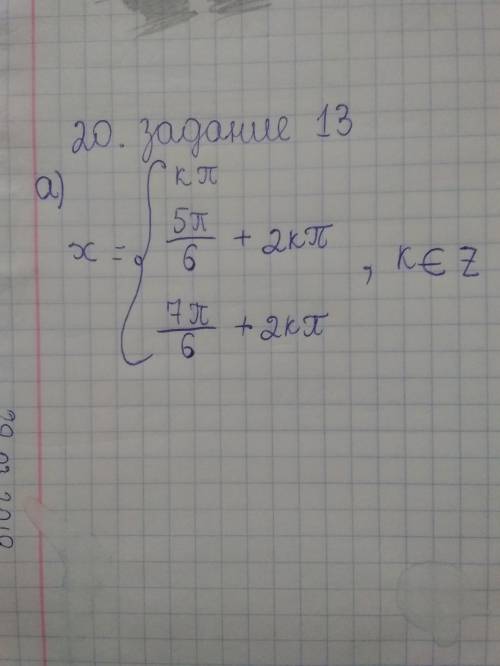 20. задание 13
а)
x = { кπ
5π/6 + 2кπ
7π/6 + 2кπ
, к ∈ Z